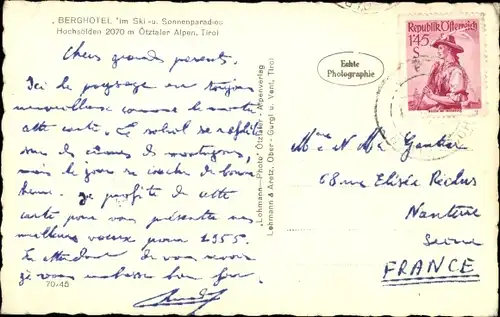 „BERGHOTEL" im Ski- u. Sonnenparadies
Hochsölden 2070 m Ötztaler Alpen, Tirol
Chers grands parents.
Ici le paysage est toujours
merveilleux comme le montre
cette carte. Le soleil se reflète
sur les cimes de montagnes,
mais le jour se couche de bonne
heure. Je profite de cette
carte pour vous présenter mes
meilleurs voeux pour 1955.
En attendant de vous revoir
je vous embrasse bien fort.
70-46
„Lohmann-Photo" Ötztaler-Alpenverlag
Lohmann & Aretz, Ober-Gurgl u. Vent, Tirol
Echte
Photographie
Republik Österreich
1.45
S
Mme M Gautier
68 rue Elisée Reclus
Nanterre
Seine
FRANCE